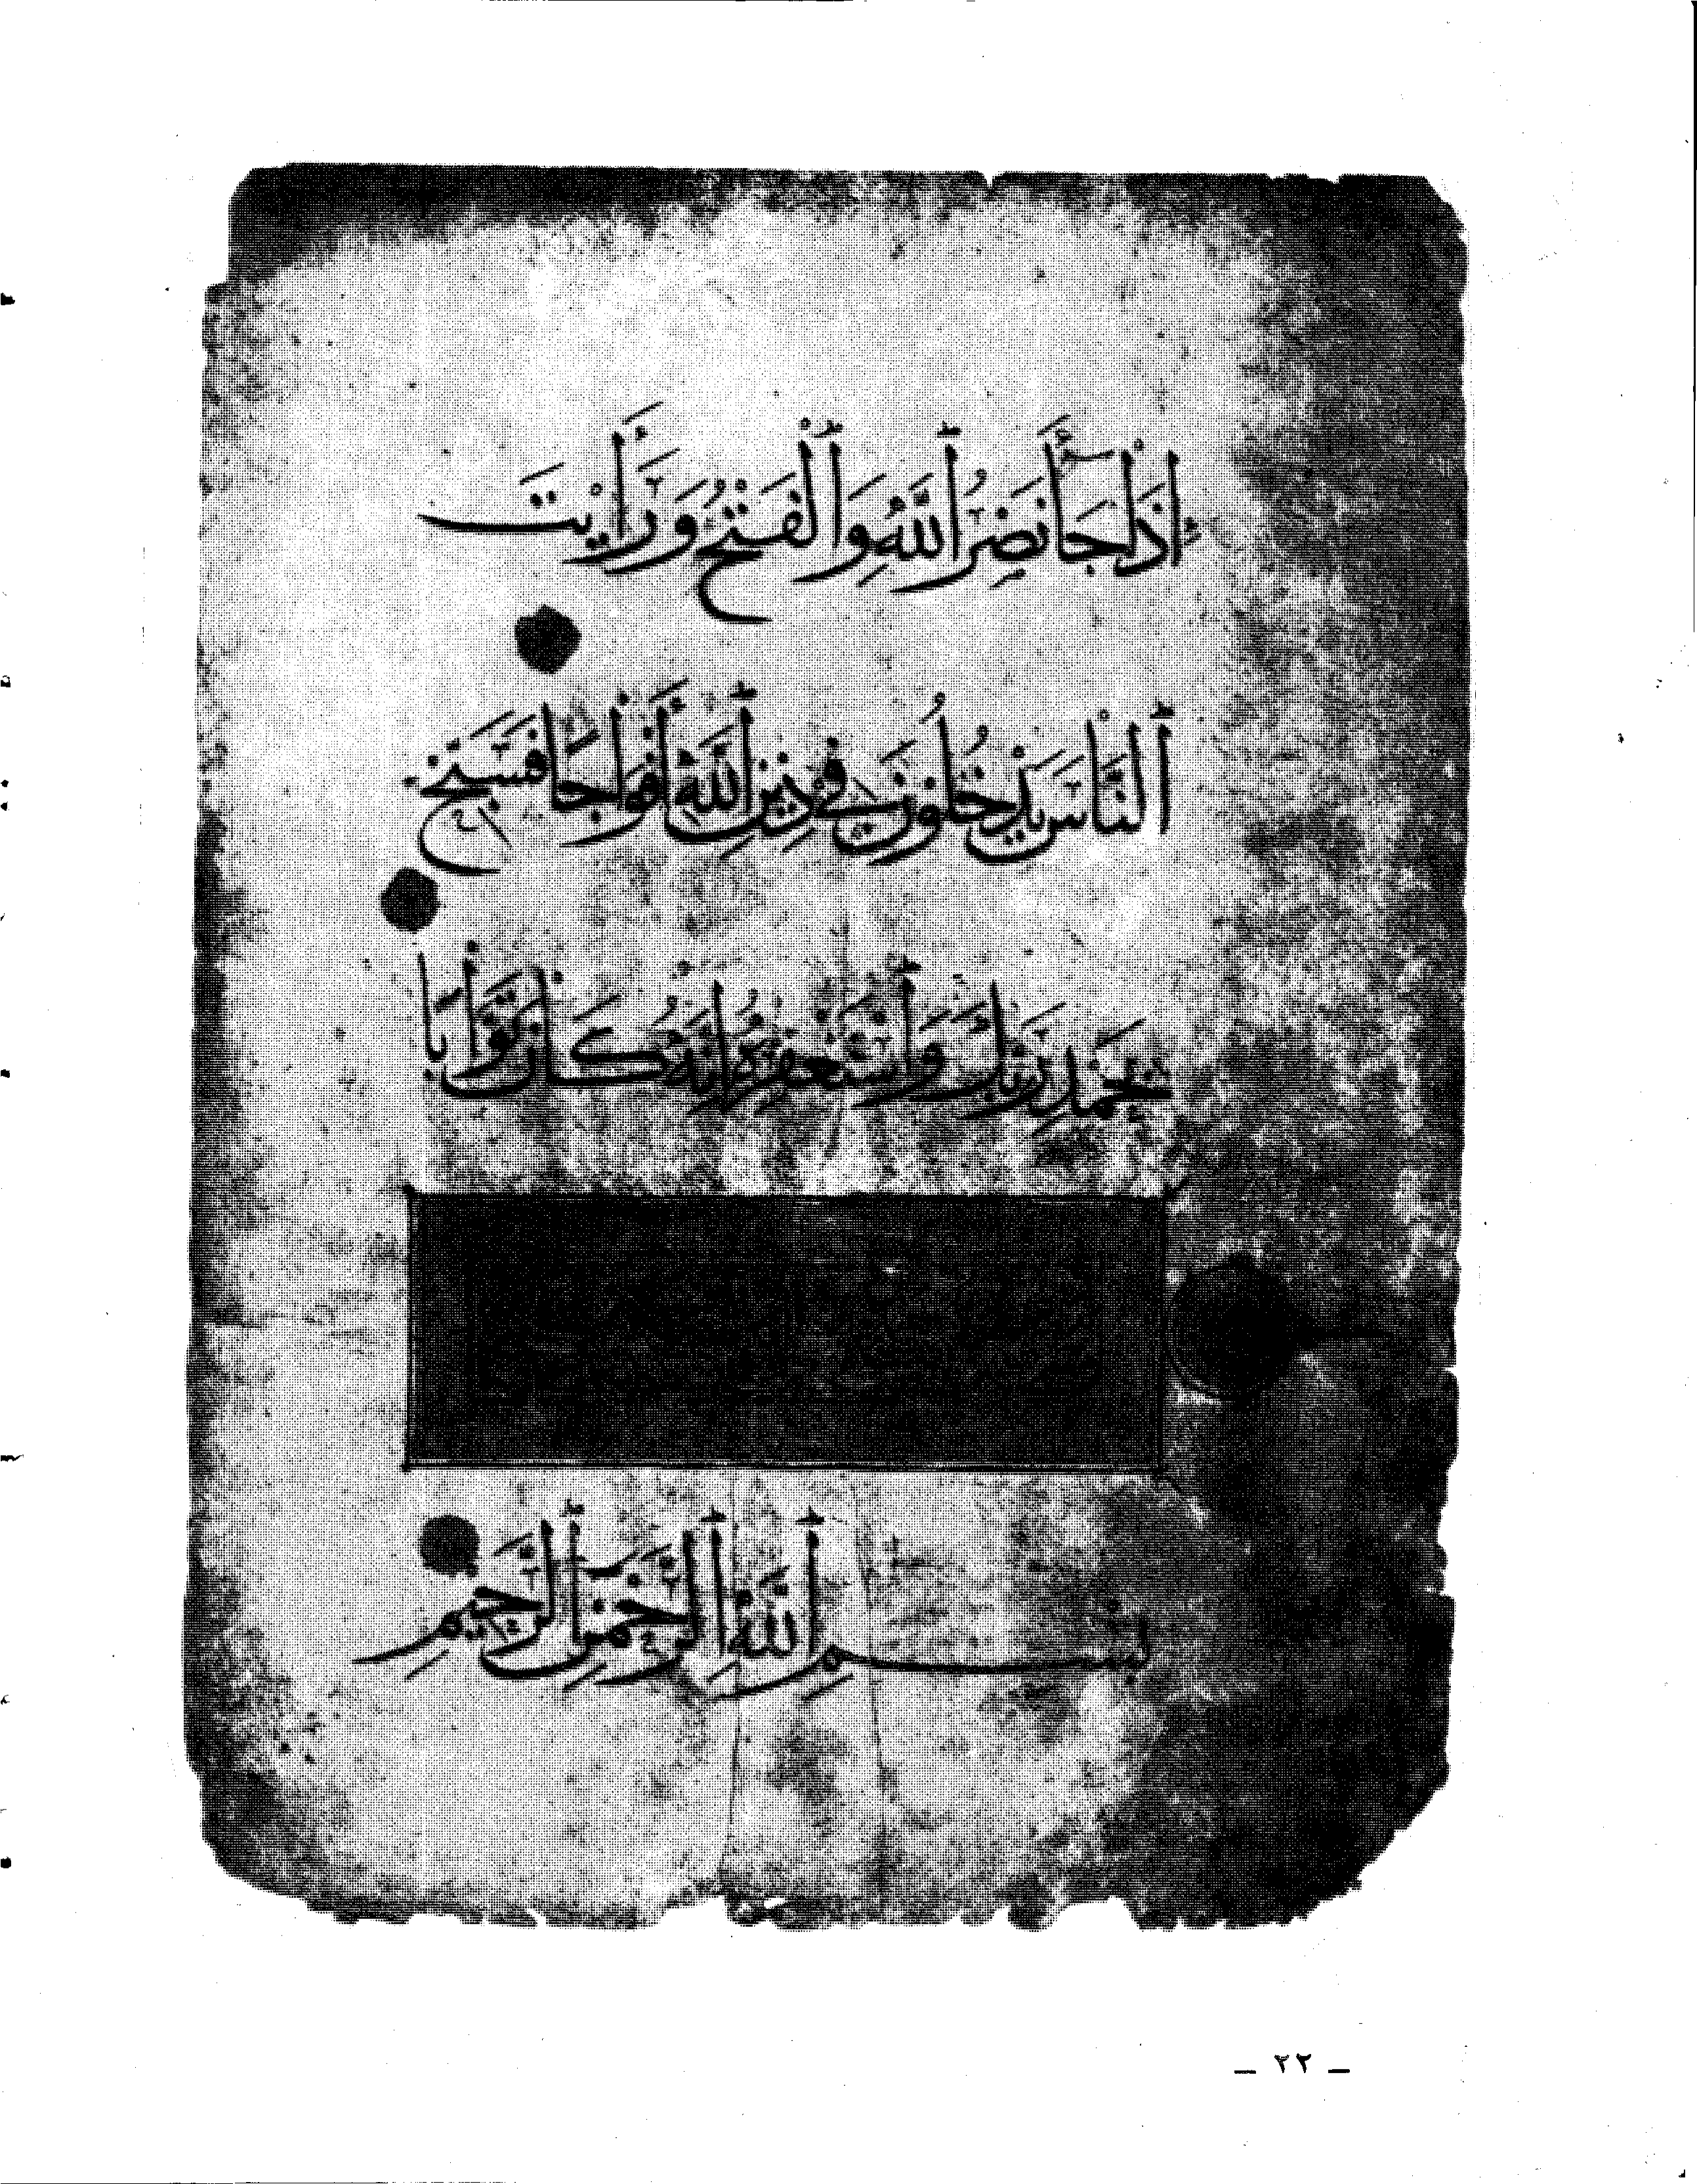 إِذَا جَآءَ نَصْرُ ٱللَّهِ وَٱلْفَتْحُ وَرَأَيْتَ
ٱلنَّاسَ يَدْخُلُونَ فِي دِينِ ٱللَّهِ أَفْوَاجًا فَسَبِّحْ
بِحَمْدِ رَبِّكَ وَٱسْتَغْفِرْهُ إِنَّهُ كَانَ تَوَّابًا
بِسْمِ ٱللَّهِ ٱلرَّحْمَٰنِ ٱلرَّحِيمِ
_ ٢٢ _